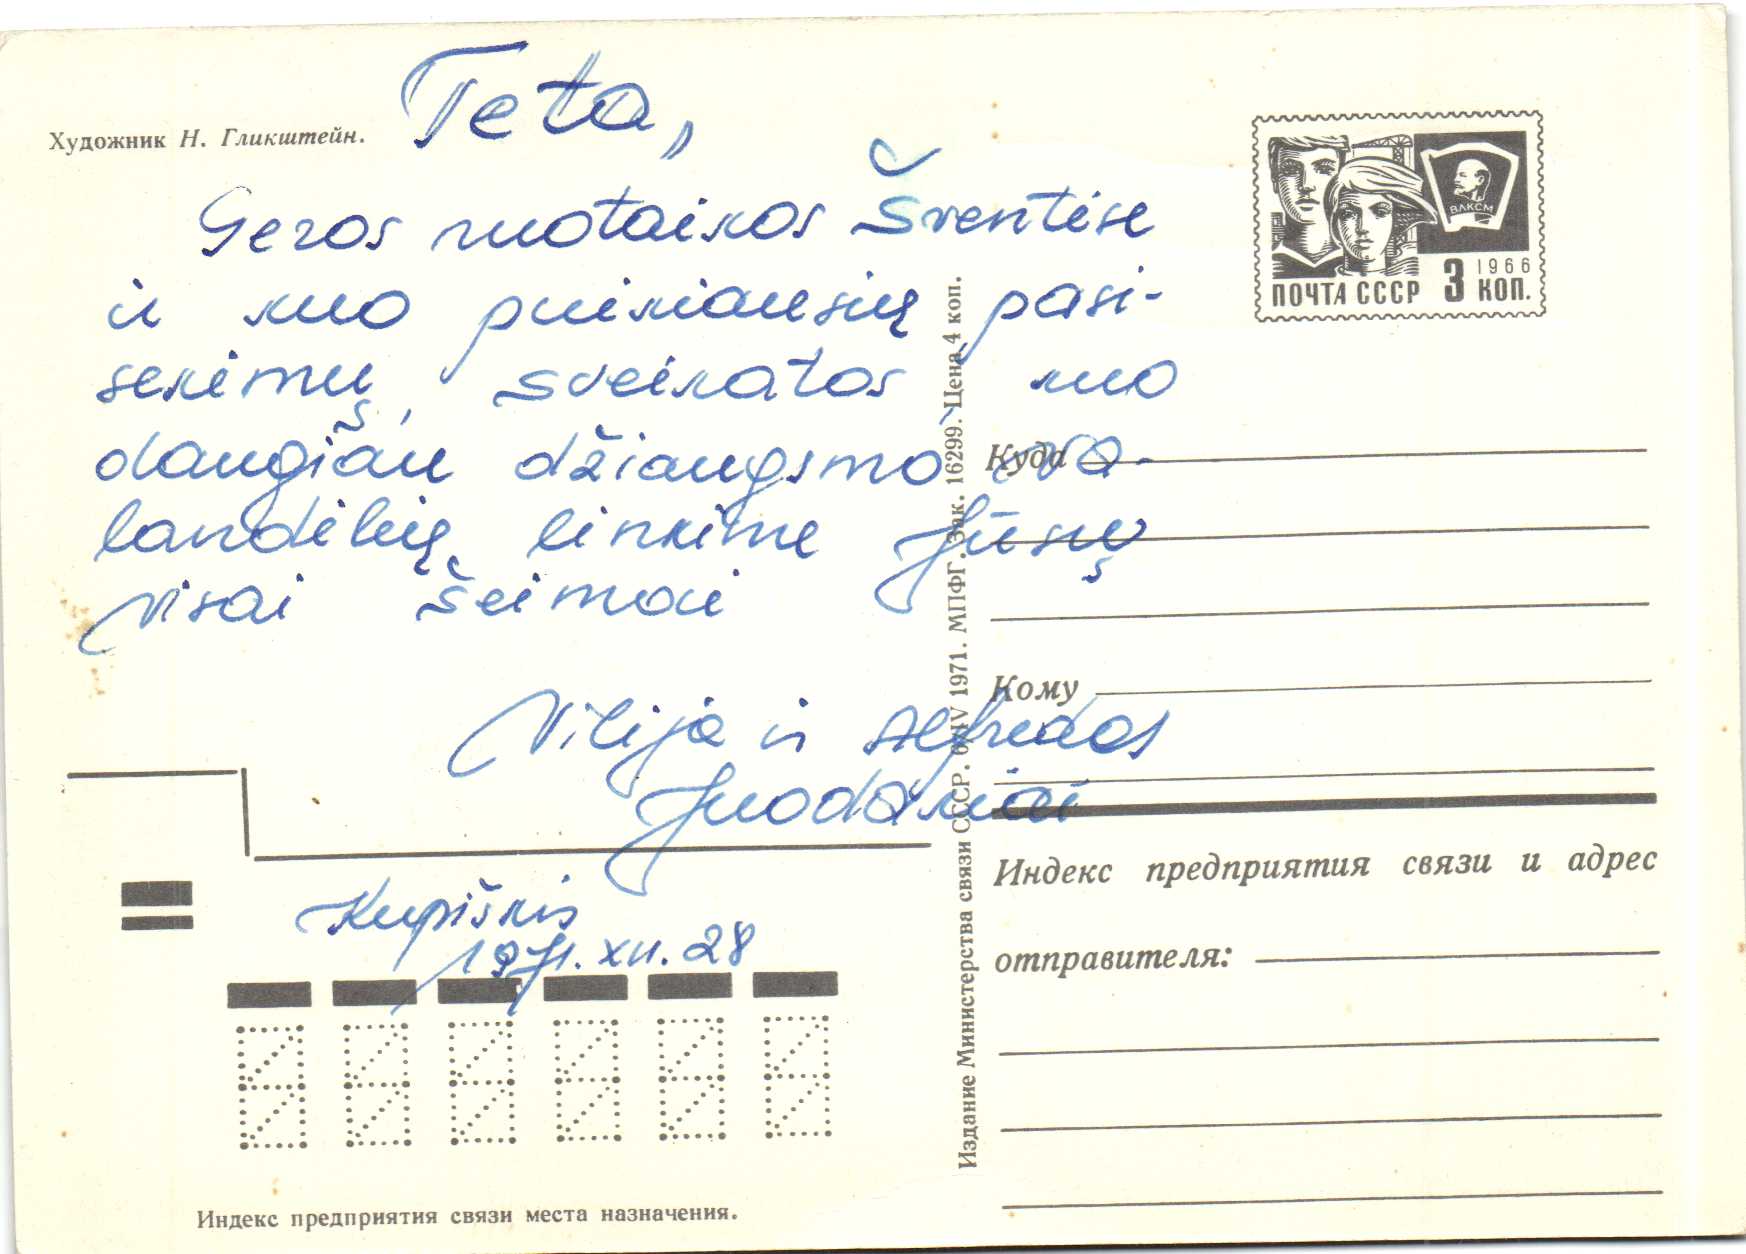 Художник Н. Гликштейн.
Teta,
Geros nuotaikos Šventėse
ir kuo puikiausių pasi-
sekimų, sveikatos, kuo
daugiau džiaugsmo va-
landėlių linkime Jūsų
visai šeimai
Vilija ir Alfredas
Juodakiai
Kupiškis
1971.XII.28
Индекс предприятия связи места назначения.
Издание Министерства связи СССР. 6/IV 1971. МПФГ. Зак. 16299. Цена 4 коп.
ВЛКСМ
1966
ПОЧТА СССР 3 КОП.
Куда
Кому
Индекс предприятия связи и адрес
отправителя: